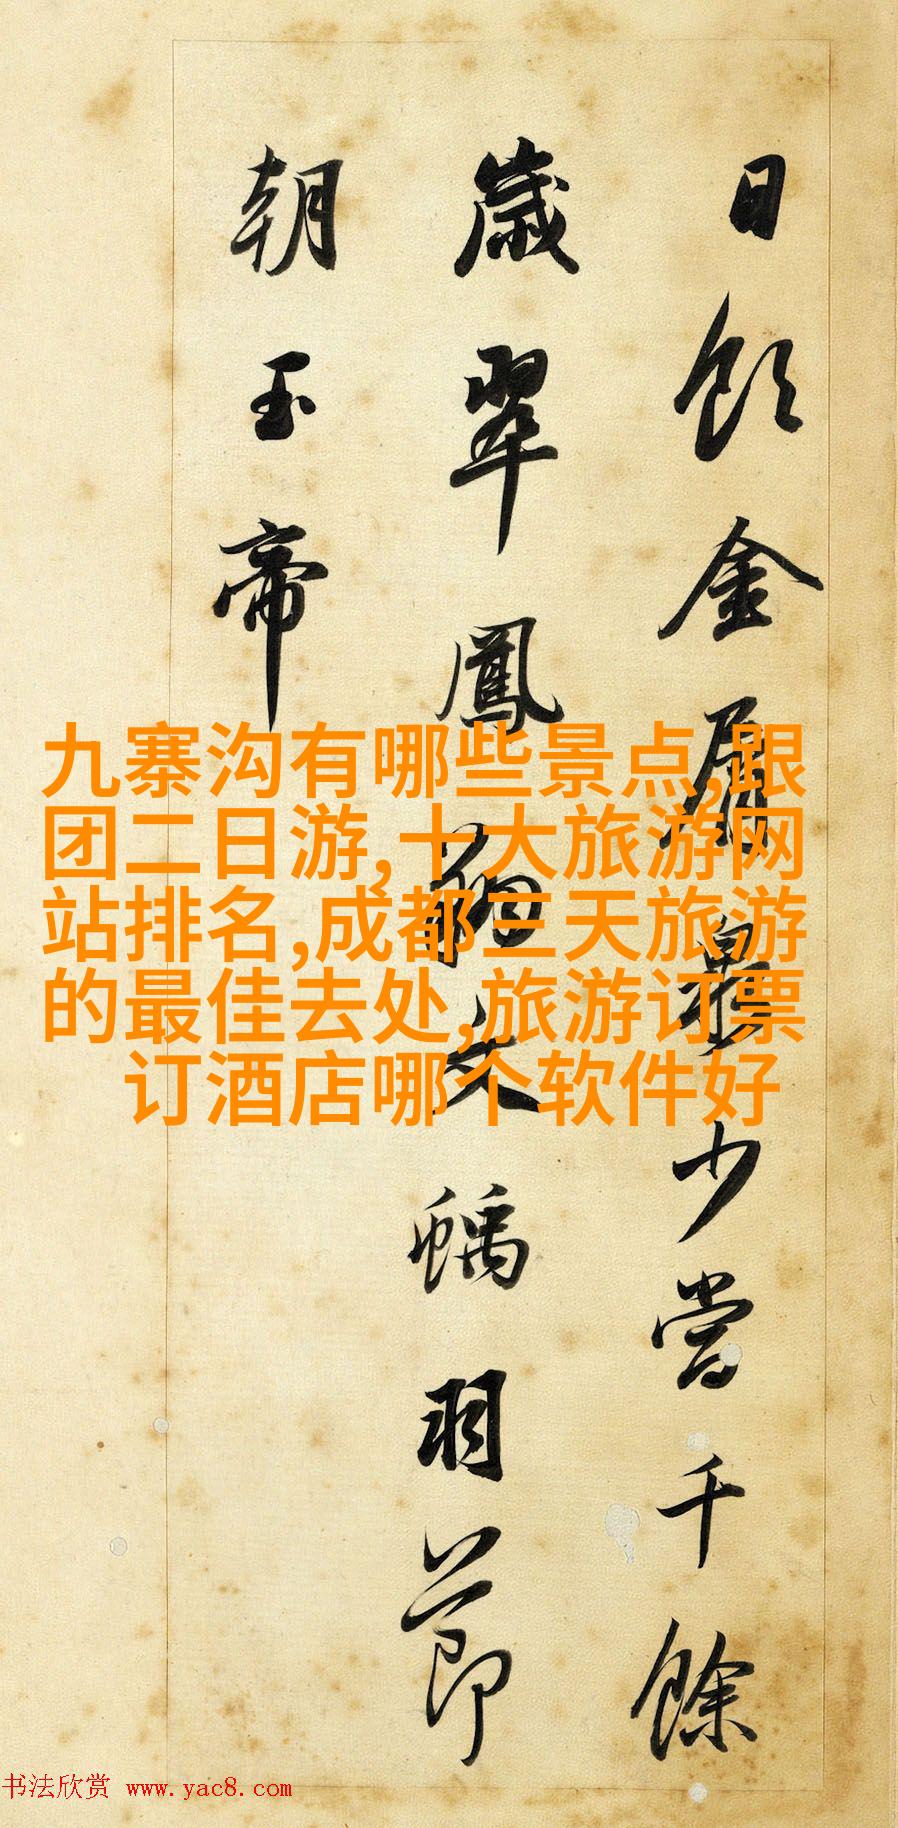 日飲金屑泉少當千餘
歲翠鳳文螭羽節
朝玉帝
九寨沟有哪些景点,跟
团二日游,十大旅游网
站排名,成都三天旅游
的最佳去处,旅游订票
订酒店哪个软件好
书法欣赏 www.yac8.com